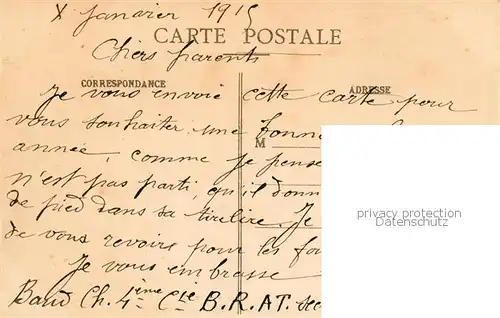 X Janvier 1915
CARTE POSTALE
Chers parents
CORRESPONDANCE
ADRESSE
Je vous envoie cette carte pour
vous souhaiter une bonne
M
année, comme je pense
n'est pas parti, qu'il donn
de pied dans sa tirelire. Je
de vous revoirs pour les
Je vous embrasse
Baud Ch. 4ème Cie B.R.AT. sec
privacy protection
Datenschutz